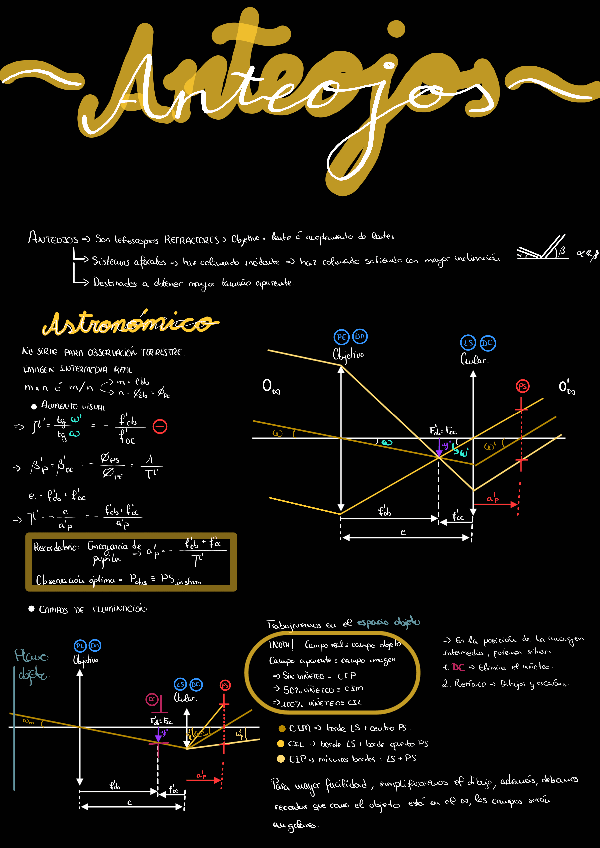 ~Anteojos~
ANTEOJOS → Son telescopios REFRACTORES → Objetivo = lente o acoplamiento de lentes
→ Sistemas afocales → haz colimado incidente → haz colimado saliente con mayor inclinación
→ Destinados a obtener mayor tamaño aparente
β α<β
Astronómico
NO SERVE PARA OBSERVACIÓN TERRESTRE
IMAGEN INTERMEDIA REAL
m×n ó m/n → m = f'ob
→ n = Øob = ØPE
● AUMENTO VISUAL
→ Γ' = tg ω' / tg ω = - f'ob / f'oc ⊖
→ β'p = β'oc = ØPS / ØPE = 1 / Γ'
e = f'ob + f'oc
→ Γ' = - e / a'p = - f'ob + f'oc / a'p
Recordatorio: Emergencia de pupila → a'p = - f'ob + f'oc / Γ'
Observación óptima = Pobs ≡ PSinstrum
PE DA
Objetivo
LS DC
Ocular
PS
O∞
O'∞
F'ob = Foc
ω
ω
-y'
ω'
ω'
a'p
f'ob
f'oc
e
● CAMPOS DE ILUMINACIÓN
Plano objeto
PE DA
Objetivo
DC
LS DC
Ocular
PS
F'ob = Foc
ωm
-y'
a'p
f'ob
f'oc
e
Trabajaremos en el espacio objeto
¡NOTA! Campo real = campo objeto
Campo aparente = campo imagen
→ Sin viñeteo = CIP
→ 50% viñeteo = CIM
→ 100% viñeteo = CIL
● CIM → borde LS + centro PS
● CIL → borde LS + borde opuesto PS
● CIP → mismos bordes = LS + PS
→ En la posición de la imagen
intermedia, podemos situar:
1. DC → Elimina el viñeteo.
2. Retículo → Dibujos y escalas.
Para mayor facilidad, simplificaremos el dibujo, además, debemos
recordar que como el objeto está en el ∞, los campos serán
angulares.